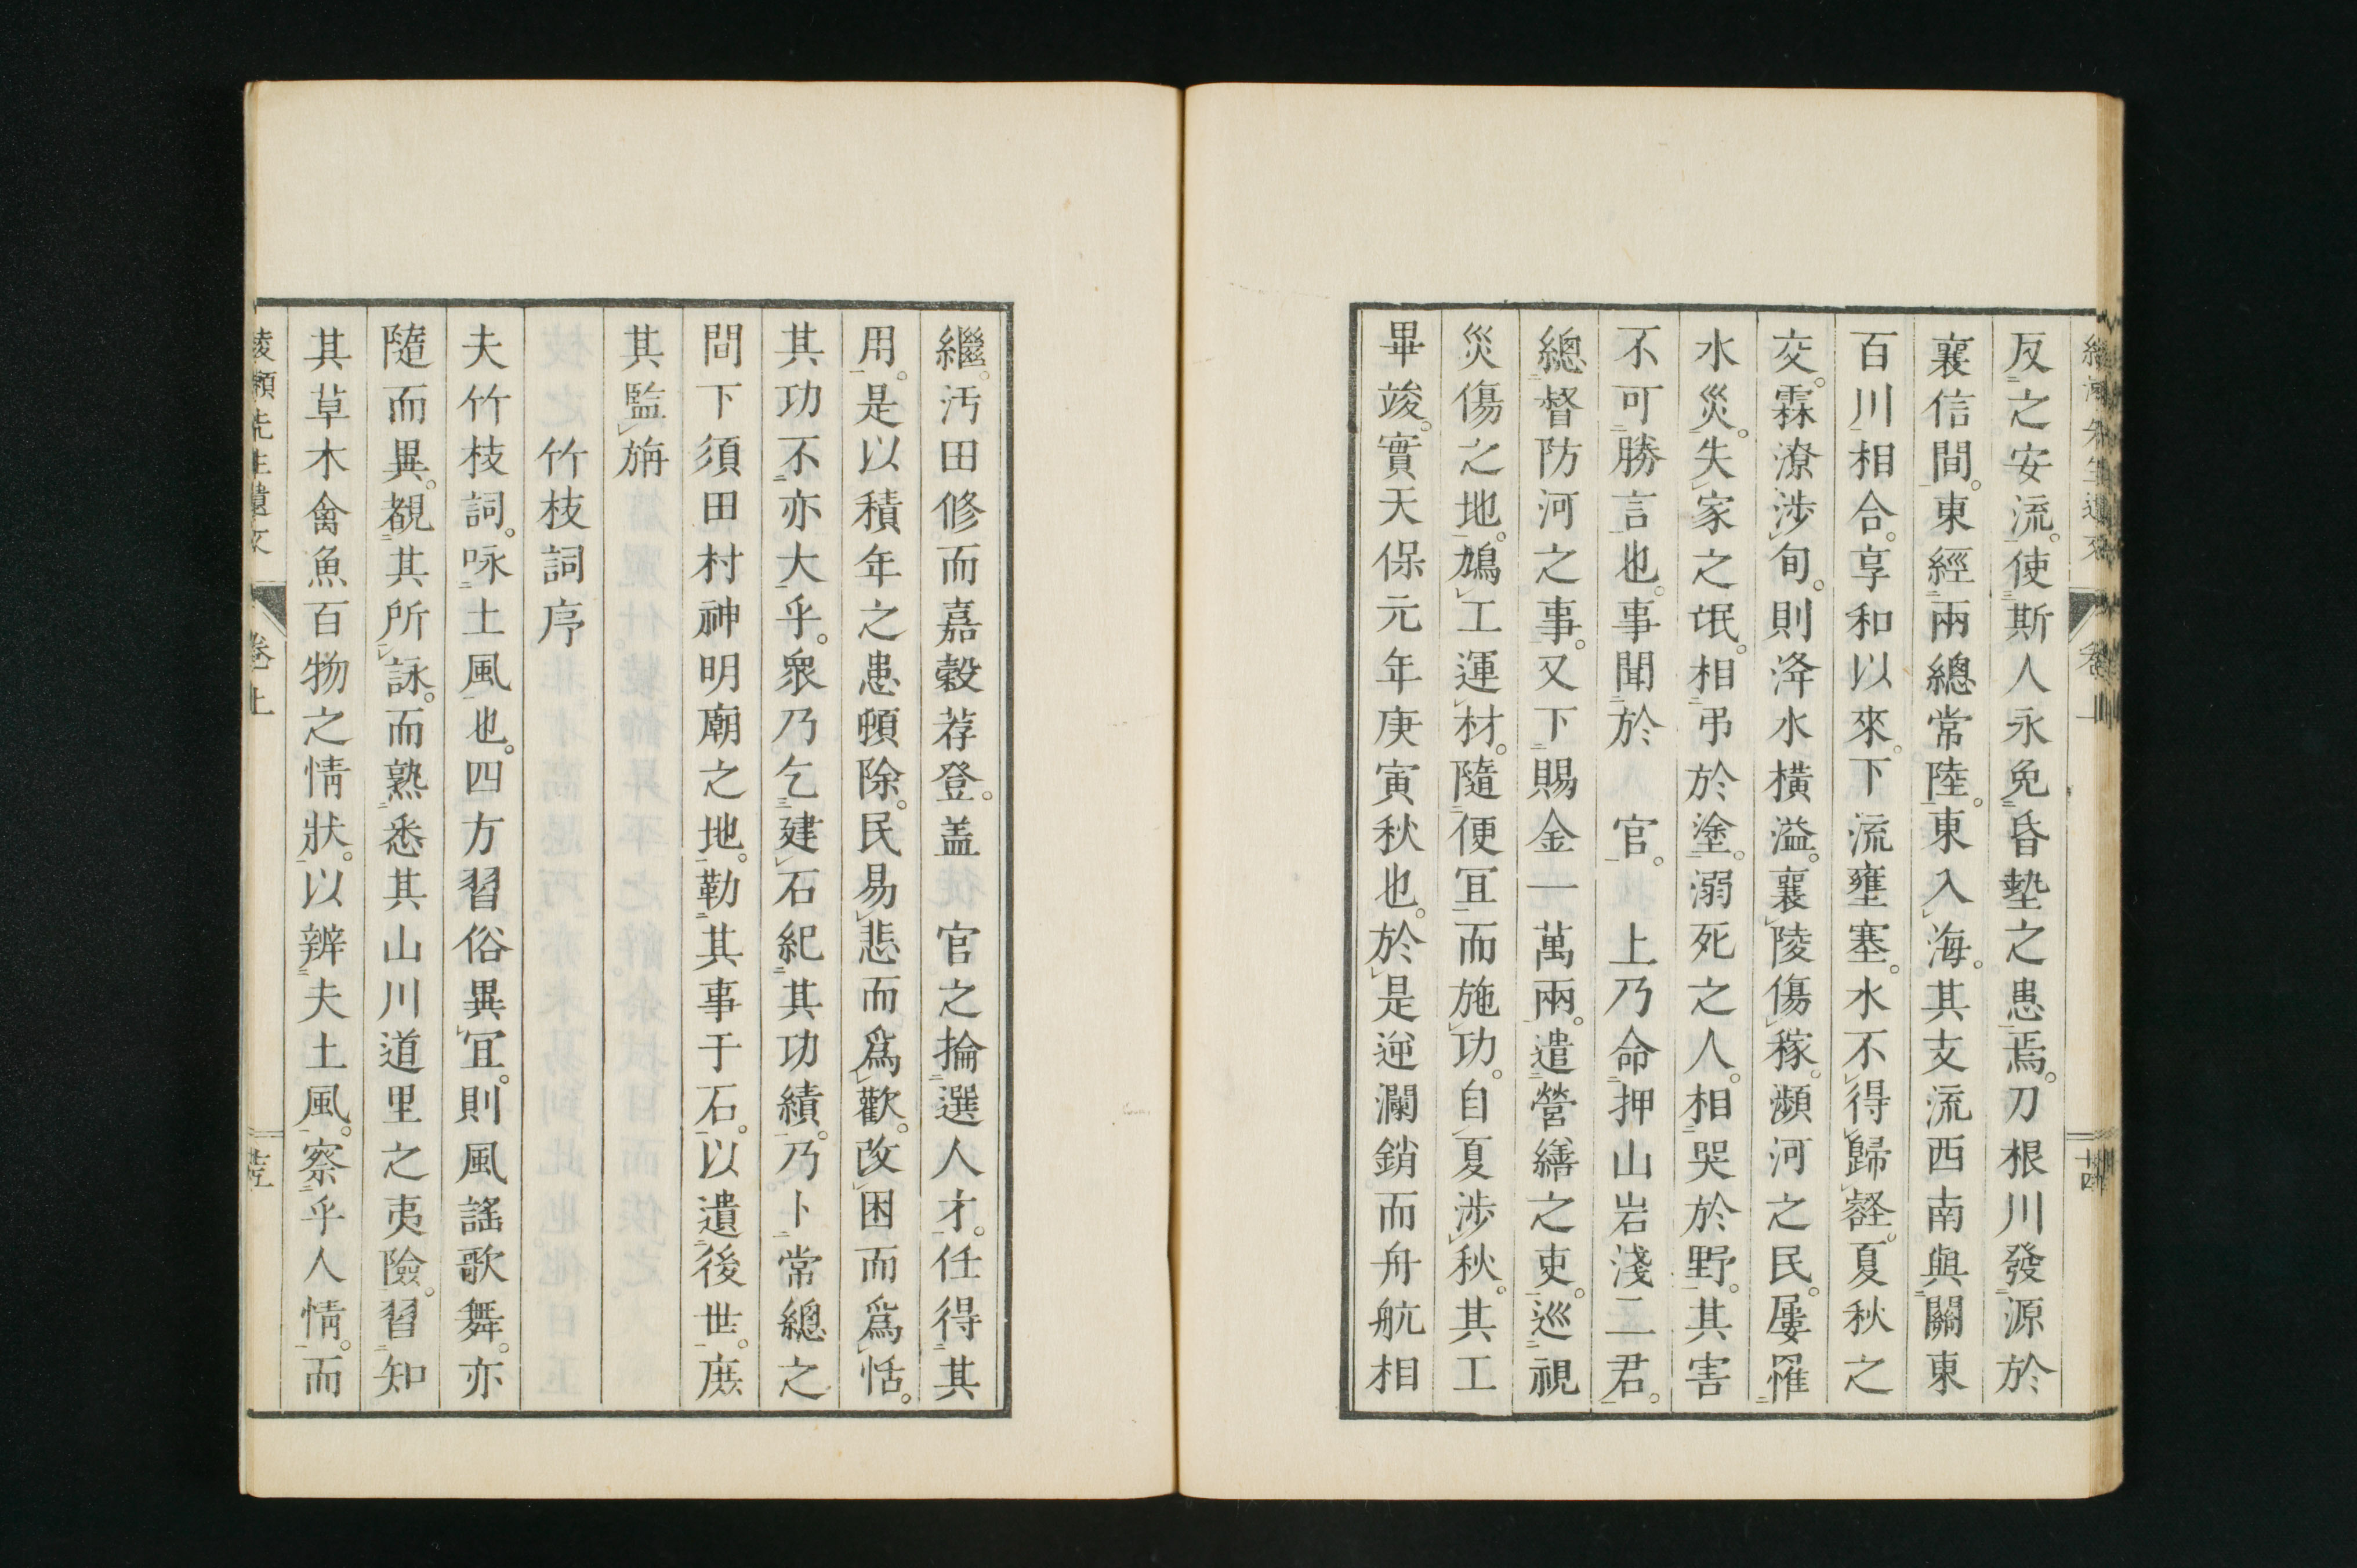 反之安流。使斯人永免昏墊之患焉。刀根川發源於
襄信間。東經兩總常陸。東入海。其支流西南與關東
百川相合。享和以來。下流壅塞。水不得歸壑。夏秋之
交。霖潦涉旬。則洚水橫溢。襄陵傷稼。瀕河之民。屢罹
水災。失家之氓。相弔於塗。溺死之人。相哭於野。其害
不可勝言也。事聞於　官。　上乃命押山岩淺二君。
總督防河之事。又下賜金一萬兩。遣營繕之吏。巡視
災傷之地。鳩工運材。隨便宜而施功。自夏涉秋。其工
畢竣。實天保元年庚寅秋也。於是逆瀾銷而舟航相
繼。汚田修而嘉穀荐登。盖　官之掄選人才。任得其
用。是以積年之患頓除。民易悲而爲歡。改困而爲恬。
其功不亦大乎。衆乃乞建石紀其功績。乃卜常總之
間下須田村神明廟之地。勒其事于石。以遺後世。庶
其監旃
竹枝詞序
夫竹枝詞。咏土風也。四方習俗異宜。則風謠歌舞。亦
隨而異。覩其所詠。而熟悉其山川道里之夷險。習知
其草木禽魚百物之情狀。以辨夫土風。察乎人情。而
先生遺文　卷上